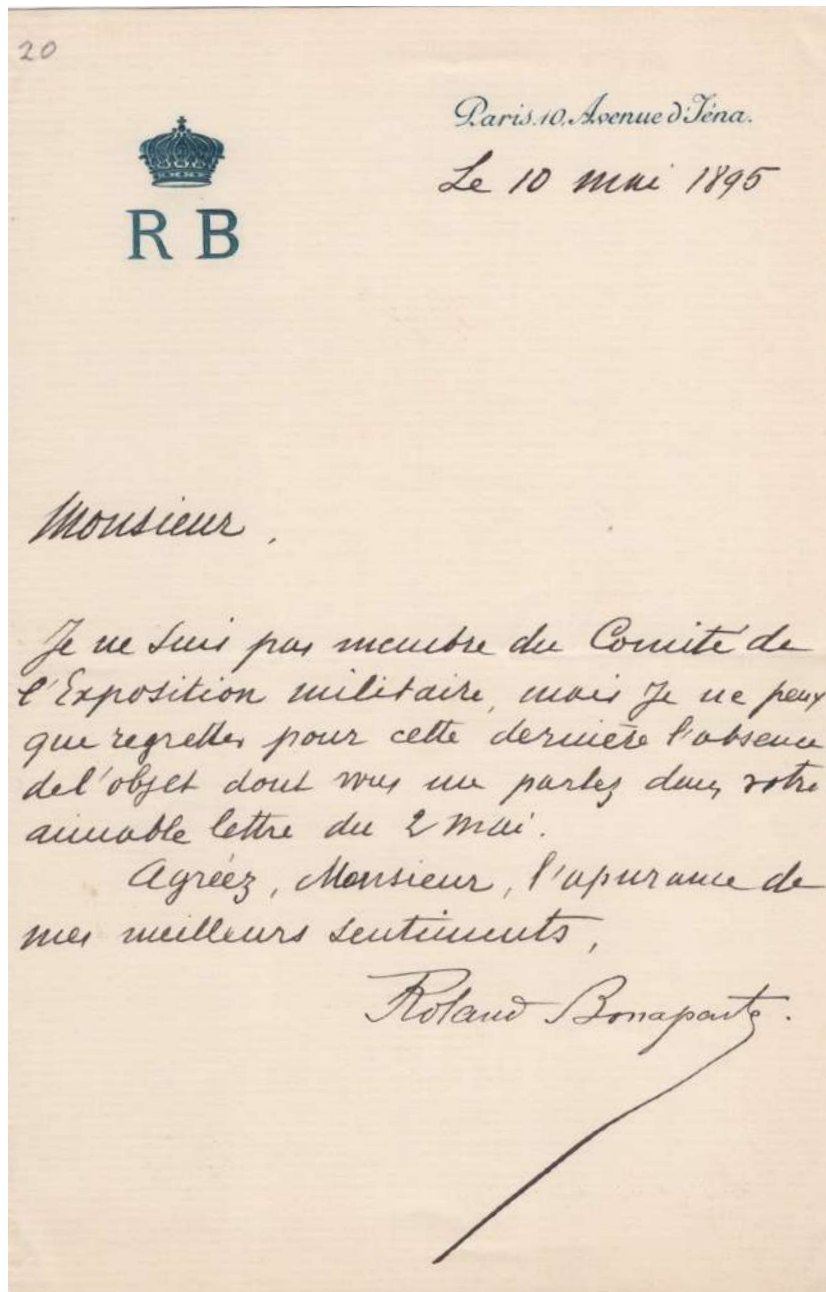 20
Paris. 10, Avenue d'Jéna.
Le 10 mai 1895
R B
Monsieur,
Je ne suis pas membre du Comité de
l'Exposition militaire, mais je ne peux
que regretter pour cette dernière l'absence
de l'objet dont vous me parlez dans votre
aimable lettre du 2 mai.
Agréez, Monsieur, l'assurance de
mes meilleurs sentiments,
Roland Bonaparte.